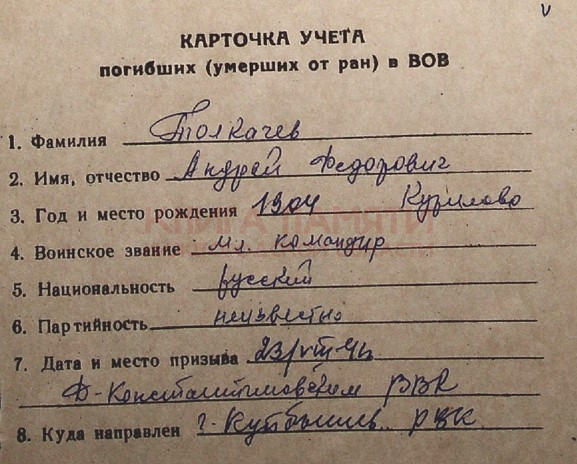 КАРТОЧКА УЧЕТА
погибших (умерших от ран) в ВОВ
1. Фамилия Толкачев
2. Имя, отчество Андрей Федорович
3. Год и место рождения 1904 Курилово
4. Воинское звание мл. командир
5. Национальность русский
6. Партийность неизвестно
7. Дата и место призыва 23/VIII-41г
Д-Константиновским РВК
8. Куда направлен г. Куйбышев РВК
КНИГА ПАМЯТИ